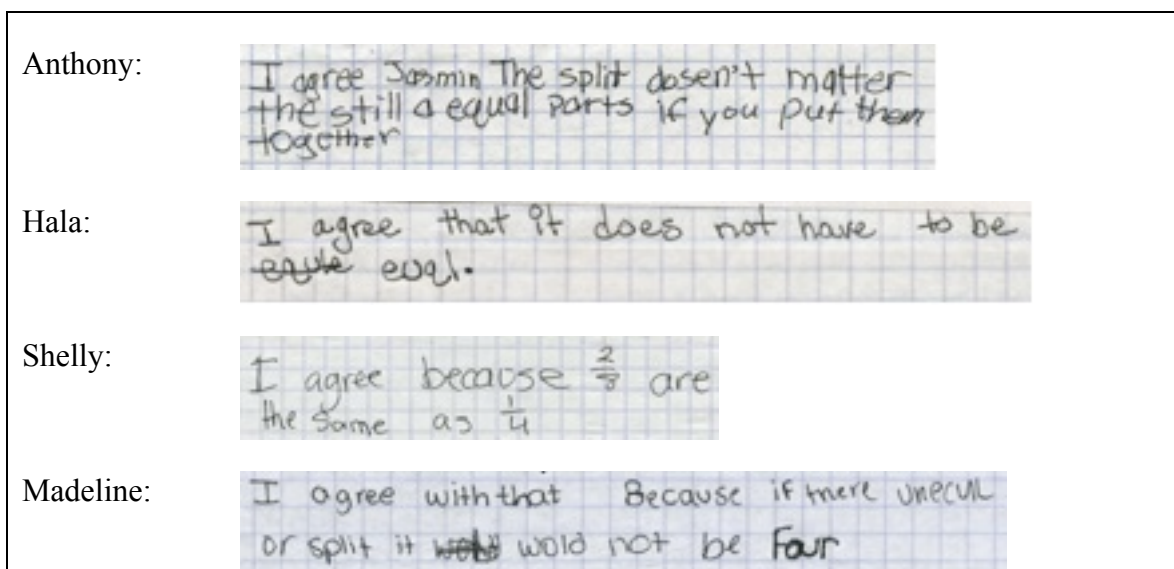 Anthony:
I agree Jasmin The split dosen't matter
the still a equal parts if you put them
together
Hala:
I agree that it does not have to be
equle euql.
Shelly:
I agree because 2/8 are
the same as 1/4
Madeline:
I agree with that Because if there unecul
or split it wold not be Four